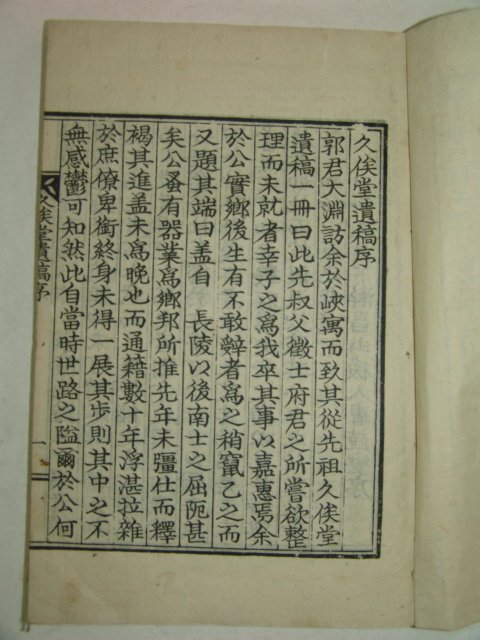 久俟堂遺稿序
郭君大淵訪余於峽寓而致其從先祖久俟堂
遺稿一冊曰此先叔父徵士府君之所嘗欲整
理而未就者幸子之爲我卒其事以嘉惠焉余
於公實鄕後生有不敢辭者爲之稍竄乙之而
又題其端曰盖自 長陵以後南士之屈阨甚
矣公蚤有器業爲鄕邦所推先年未彊仕而釋
褐其進盖未爲晩也而通籍數十年浮湛拉雜
於庶僚卑銜終身未得一展其步則其中之不
無感鬱可知然此自當時世路之隘爾於公何
久俟堂遺稿序
一